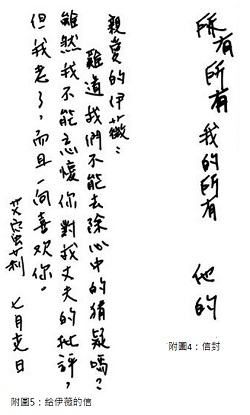 所有所有 我的所有 他的
附圖4：信封
親愛的伊薇：
難道我們不能去除心中的猜疑嗎？
雖然我不能忘懷你對我丈夫的批評，
但我老了，而且一向喜欢你。
艾蜜莉 七月 日
附圖5：給伊薇的信